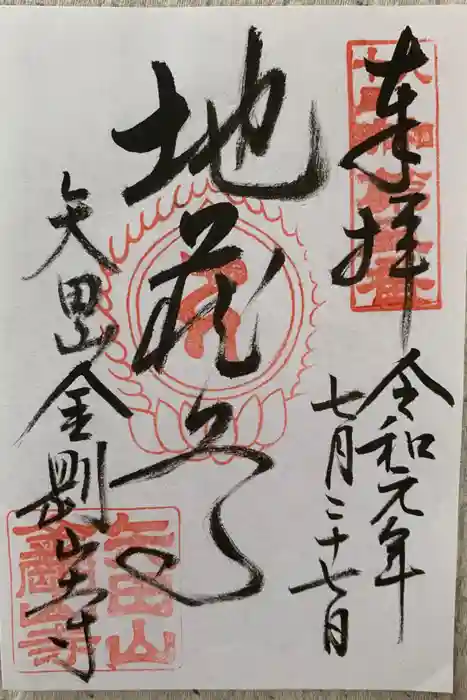 奉拝
令和元年
七月二十七日
地蔵尊
矢田山金剛山寺
矢田山
金剛山寺